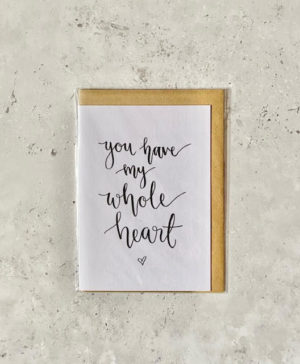 you have
my
whole
heart